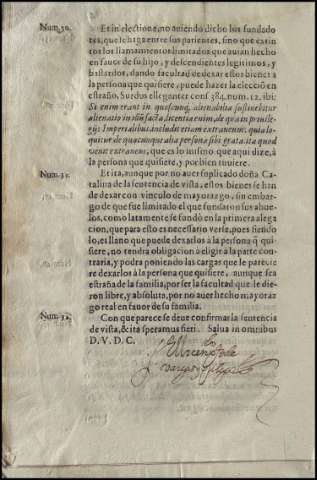 Num. 30.
Et in electione, no auiendo dicho los fundadores, que le haga entre sus parientes, sino que estintos los llamamientos limitados que auian hecho
en fauor de su hijo, y descendientes legitimos, y
bastardos, dando facultad de dexar estos bienes a
la persona que quisiere, puede hazer la eleccion en
estraño. Surdus eleganter cons. 384. num. 12. ibi:
alteratio in
legijs Imperialibus includit etiam extraneum, quia loquitur de quacumque alia persona
, que es lo mismo que aqui dize, à
la persona que quisiere, y por bien tuuiere.
Num. 31.
Et ita, aunque por no auer suplicado doña Catalina de la sentencia de vista, estos bienes se han
de dexar con vinculo de mayorazgo, sin embargo de que fue limitado el que fundaron sus abuelos, como latamente se fundò en la primera alegacion, que para esto es necessario verse, pues siendolo, es llano que puede dexarlos à la persona q̃ quisiere, no tendra obligacion à eligir a la parte contraria, y podra poniendo las cargas que le pareciere dexarlos à la persona que quisiere, aunque sea
estraña de la familia, por ser la facultad que le dieron libre, y absoluta, por no auer hecho mayorazgo real en fauor de su familia.
Num. 32.
Con que parece se deue confirmar la sentencia
de vista, & ita speramus fieri. Salua in omnibus
D. V. D. C.